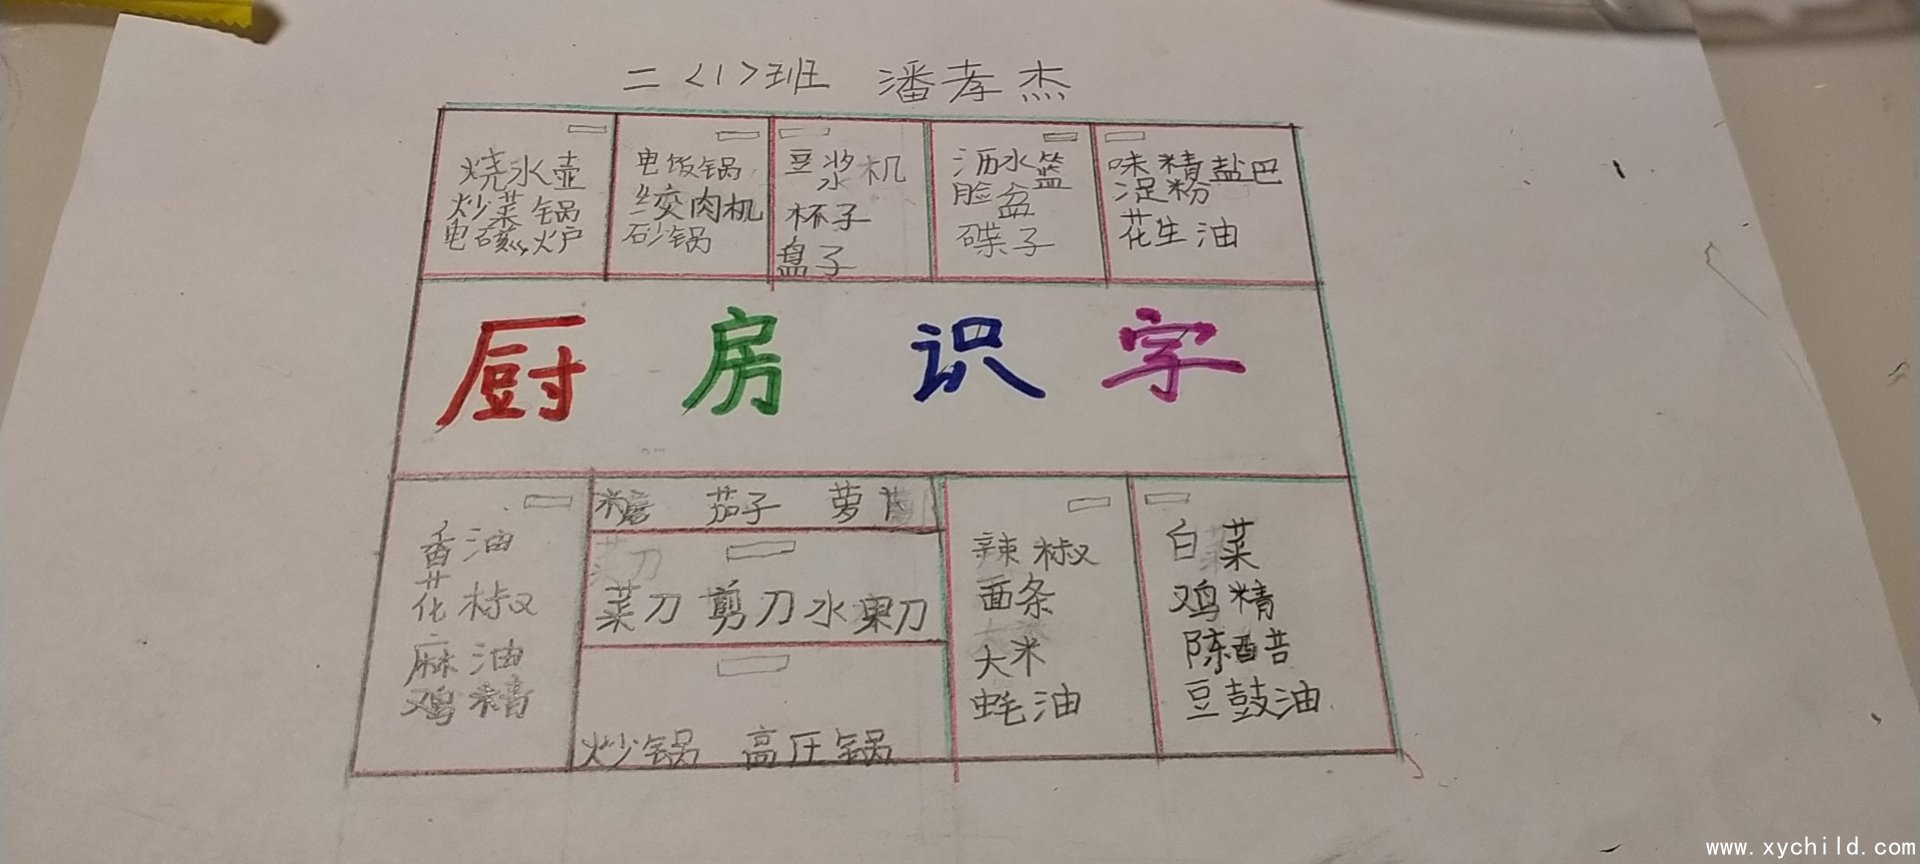 二<1>班 潘孝杰
烧水壶
炒菜锅
电磁炉
电饭锅
绞肉机
砂锅
豆浆机
杯子
盘子
沥水篮
脸盆
碟子
味精盐巴
淀粉
花生油
厨房识字
香油
花椒
麻油
鸡精
糖 茄子 萝卜
菜刀 剪刀 水果刀
炒锅 高压锅
辣椒
面条
大米
蚝油
白菜
鸡精
陈醋
豆鼓油
www.xychild.com